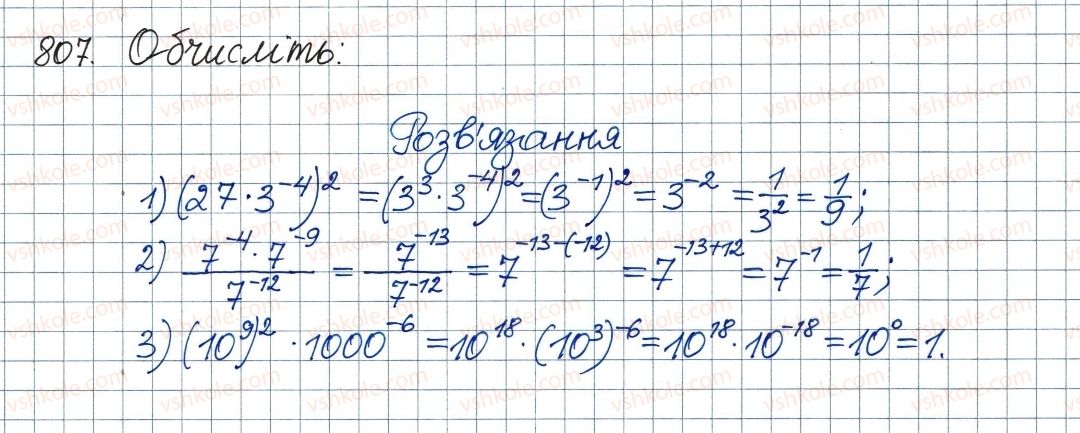 807. Обчисліть:
Розв'язання
1) (27·3⁻⁴)² = (3³·3⁻⁴)² = (3⁻¹)² = 3⁻² = 1/3² = 1/9;
2) 7⁻⁴·7⁻⁹/7⁻¹² = 7⁻¹³/7⁻¹² = 7⁻¹³⁻⁽⁻¹²⁾ = 7⁻¹³⁺¹² = 7⁻¹ = 1/7;
3) (10⁹)²·1000⁻⁶ = 10¹⁸·(10³)⁻⁶ = 10¹⁸·10⁻¹⁸ = 10⁰ = 1.
vshkole.com